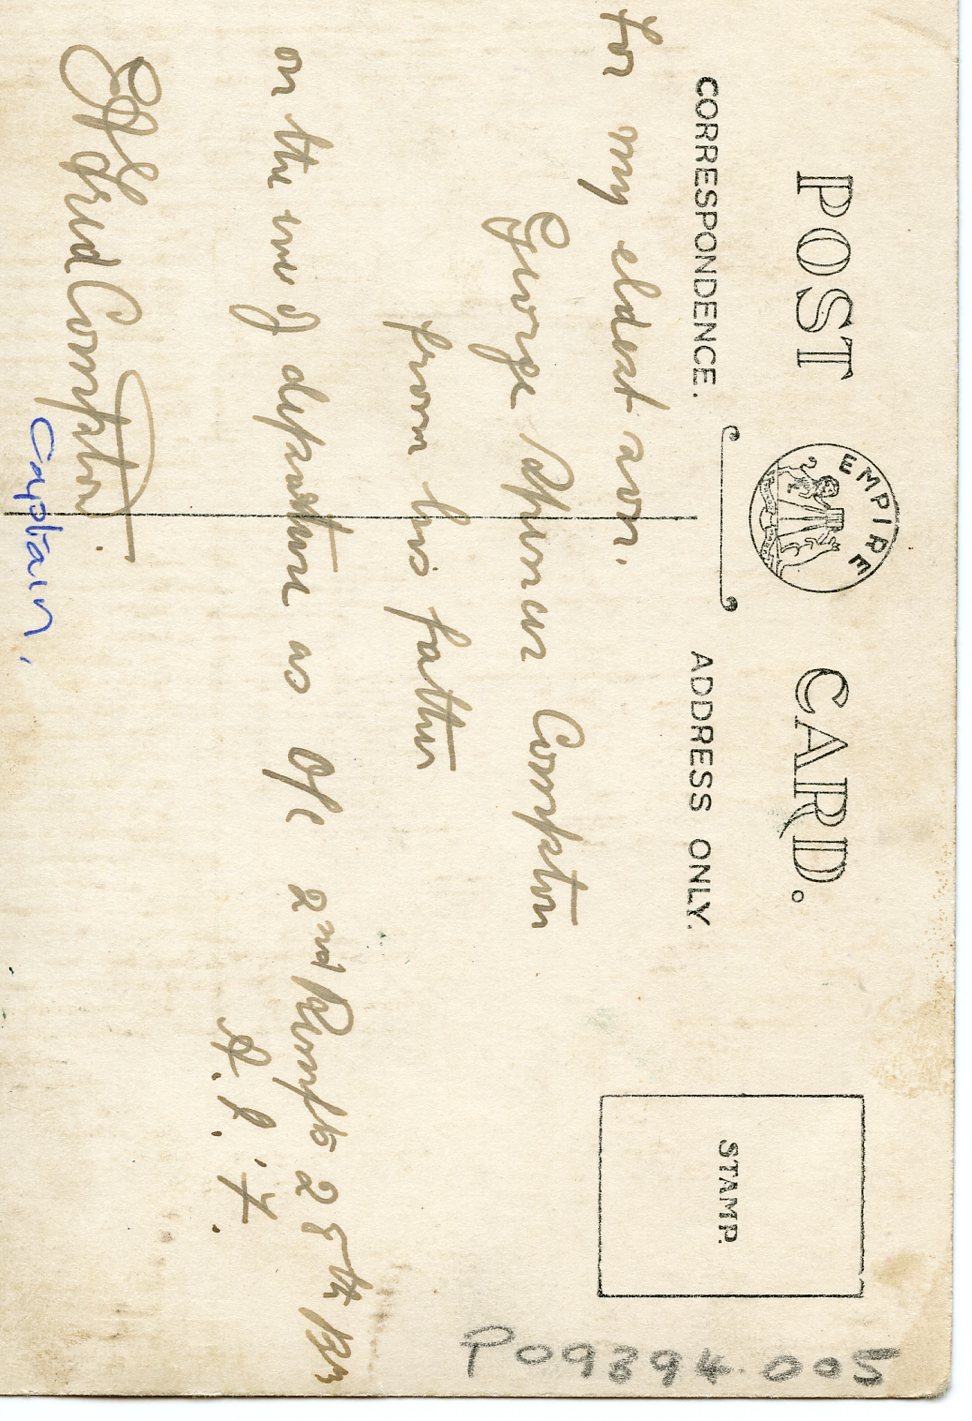 POST CARD.
EMPIRE
CORRESPONDENCE.
ADDRESS ONLY.
STAMP.
for my eldest son.
George Spencer Compton
from his father
on the eve of departure as O/C 2nd Reinfts 28th Bn
A.I.F.
Compton
Captain,
P09394.005